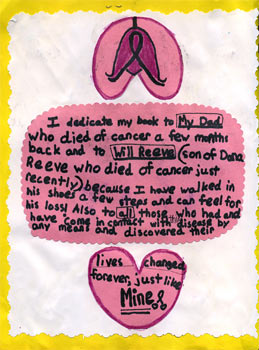 I dedicate my book to My Dad
who died of cancer a few months
back and to Will Reeve (son of Dana
Reeve who died of cancer just
recently) because I have walked in
his shoes a few steps and can feel for
his loss! Also to all those who had and
have come in contact with this disease by
any means and discovered their
lives changed
forever, just like
Mine!